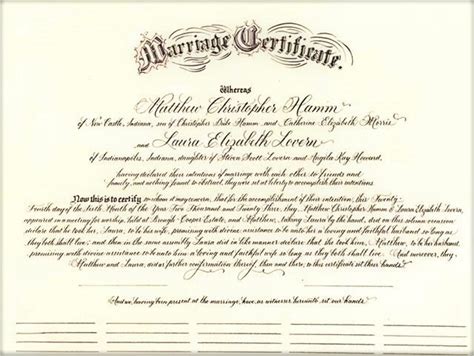 Marriage Certificate.
Whereas
Matthew Christopher Hamm
of New Castle, Indiana, son of Christopher Dale Hamm and Catherine Elizabeth Morris
and
Laura Elizabeth Lovern
of Indianapolis, Indiana, daughter of Steven Scott Lovern and Angela Kay Howard,
having declared their intentions of marriage with each other to friends and
family, and nothing found to obstruct, they were set at liberty to accomplish their intentions.
Now this is to certify, to whom it may concern, that for the accomplishment of their intention, this Twenty-
Fourth day of the Sixth Month of the Year Two Thousand and Twenty Three, they Matthew Christopher Hamm & Laura Elizabeth Lovern,
appeared in a meeting for worship, held at Cooper Estate, and Matthew, taking Laura by the hand, did on this solemn occasion
declare that he took her, Laura, to be his wife, promising with divine assistance to be unto her a loving and faithful husband so long as
they both shall live; and then in the same assembly Laura did in like manner declare that she took him, Matthew, to be her husband,
promising with divine assistance to be unto him a loving and faithful wife so long as they both shall live. And moreover, they,
Matthew and Laura, did as further confirmation thereof, then and there, to this certificate set their hands.
And we, having been present at the marriage, have as witnesses hereunto set our hands.